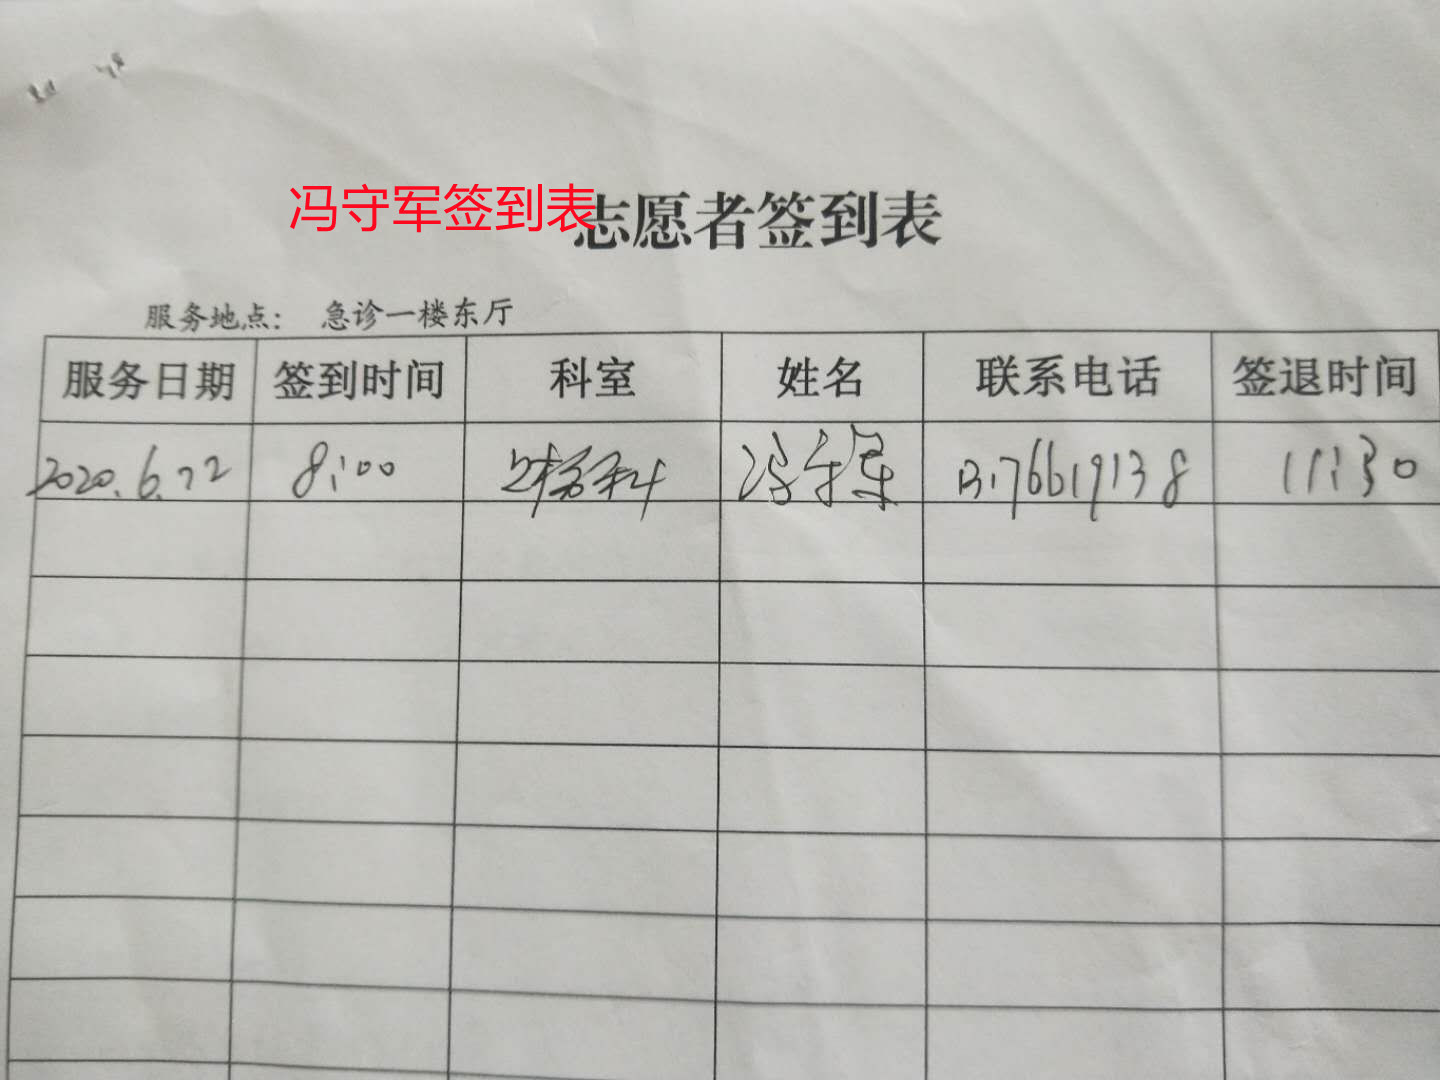 冯守军签到表
志愿者签到表
服务地点： 急诊一楼东厅
服务日期 签到时间 科室 姓名 联系电话 签退时间
2020.6.22 8:00 冯守军 13176619138 11:30